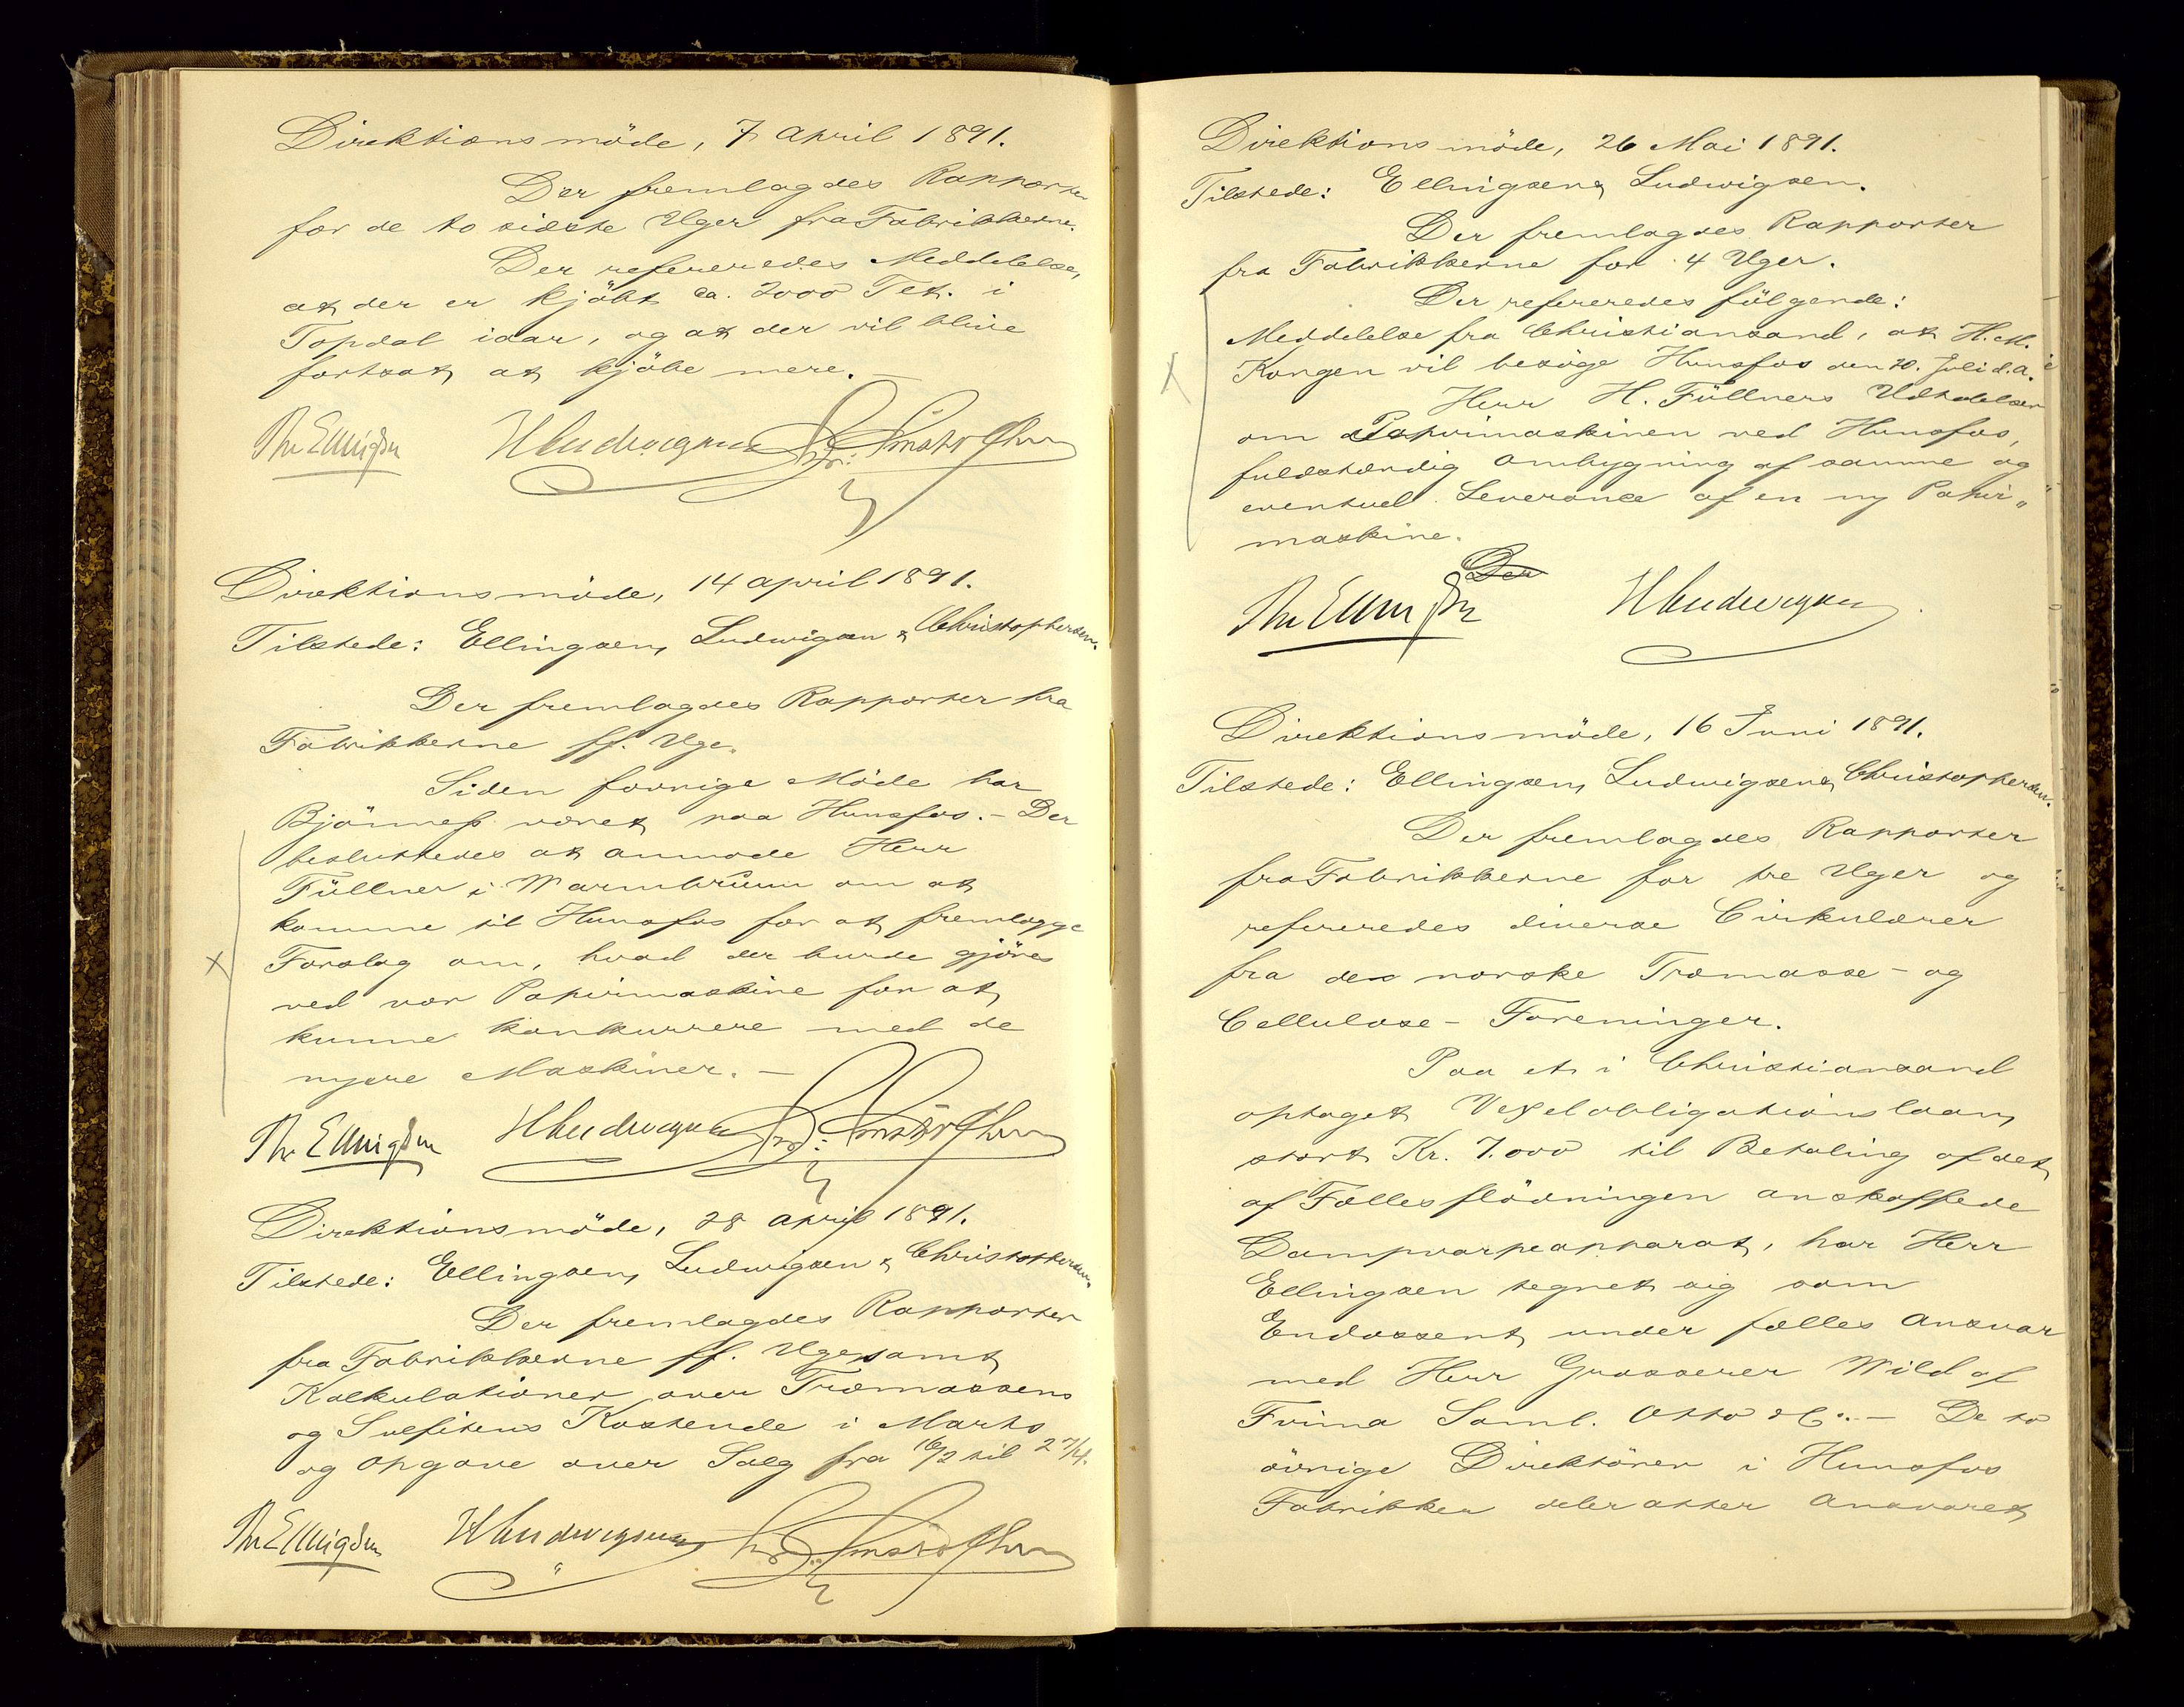 Direktionsmöde, 7 April 1891.
Der fremlagdes Rapporter
for de to sidste Uger fra Fabrikkerne.
Der refereredes Meddelelse,
at der er kjöbt ca. 2000 Tct. i
Topdal iaar, og at der vil blive
fortsat at kjöbe mere. —
Th. Ellingsen H Ludwigsen Chr. Christophersen
Direktionsmöde, 14 April 1891.
Tilstede: Ellingsen, Ludwigsen & Christophersen.
Der fremlagdes Rapporter fra
Fabrikkerne ff. Uge.
Siden forrige Möde har
Bjönness været paa Hunsfos. — Der
besluttedes at anmode Herr
Füllner i Warmbrunn om at
komme til Hunsfos for at fremlægge
Forslag om, hvad der burde gjöres
ved vor Papirmaskine for at
kunne konkurrere med de
nyere Maskiner. —
Th. Ellingsen H Ludwigsen Chr. Christophersen
Direktionsmöde, 28 April 1891.
Tilstede: Ellingsen, Ludwigsen & Christophersen.
Der fremlagdes Rapporter
fra Fabrikkerne ff. Uge, samt
Kalkulationer over Træmassens
og Sulfitens Kostende i Marts
og Opgave over Salg fra 16/2 til 27/4.
Th. Ellingsen H Ludwigsen Chr. Christophersen
Direktionsmöde, 26 Mai 1891.
Tilstede: Ellingsen & Ludwigsen.
Der fremlagdes Rapporter
fra Fabrikkerne for 4 Uger.
Der refereredes fölgende:
Meddelelse fra Christiansand, at H. M.
Kongen vil besöge Hunsfos den 20. Juli d. A.
Herr H. Füllners Udtalelser
om Papirmaskinen ved Hunsfos,
fuldstændig Ombygning af samme og
eventuel Leverance af en ny Papir„
maskine.
Der
Th. Ellingsen H Ludwigsen
Direktionsmöde, 16 Juni 1891.
Tilstede: Ellingsen, Ludwigsen & Christophersen.
Der fremlagdes Rapporter
fra Fabrikkerne for tre Uger og
refereredes diverse Cirkulærer
fra den norske Træmasse- og
Cellulose- Foreninger.
Paa et i Christiansand
optaget Vexelobligationslaan,
stort Kr. 7.000 til Betaling af det
af Fællesflödningen anskaffede
Dampvarpeapparat, har Herr
Ellingsen tegnet sig som
Endossent under fælles Ansvar
med Herr Grosserer Wild af
Firma Saml. Otto & C°. — De to
övrige Direktörer i Hunsfos
Fabrikker deler atter Ansvaret